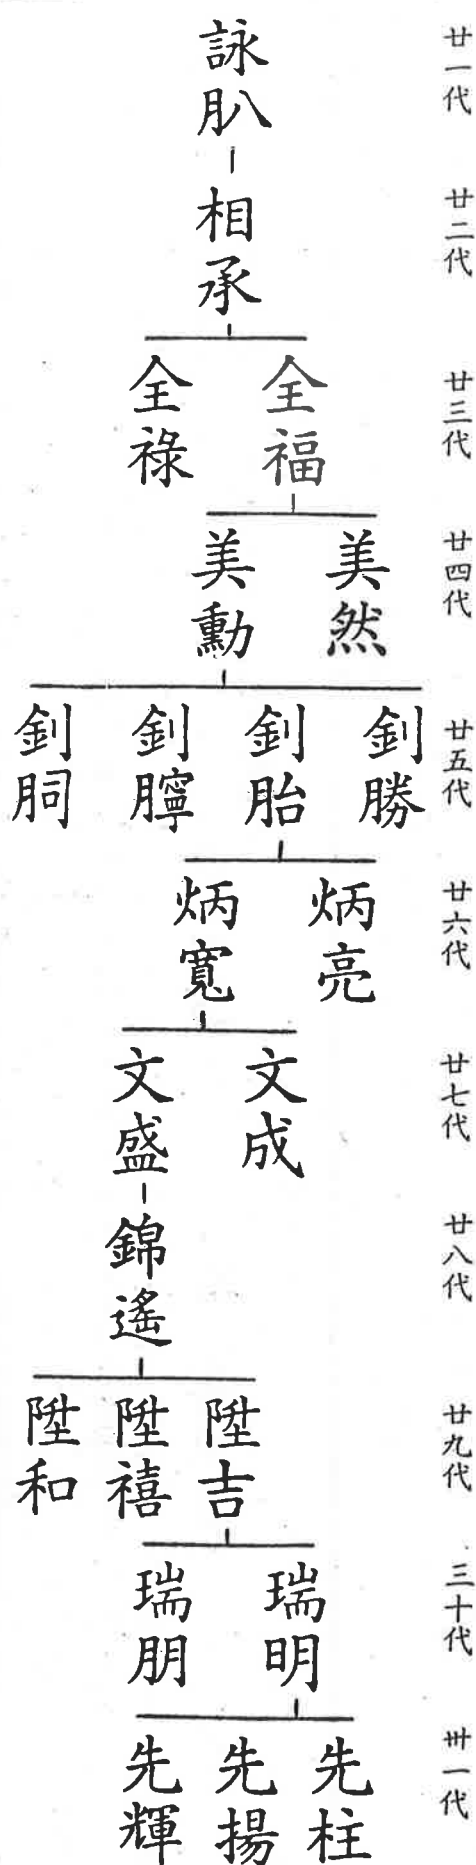 廿一代
詠
廿二代
相承
廿三代
全福 全祿
廿四代
美然 美勳
廿五代
釗勝 釗胎 釗臊 釗胴
廿六代
炳亮 炳寬
廿七代
文成 文盛
廿八代
錦遙
廿九代
陞吉 陞禧 陞和
三十代
瑞明 瑞朋
卅一代
先柱 先揚 先輝